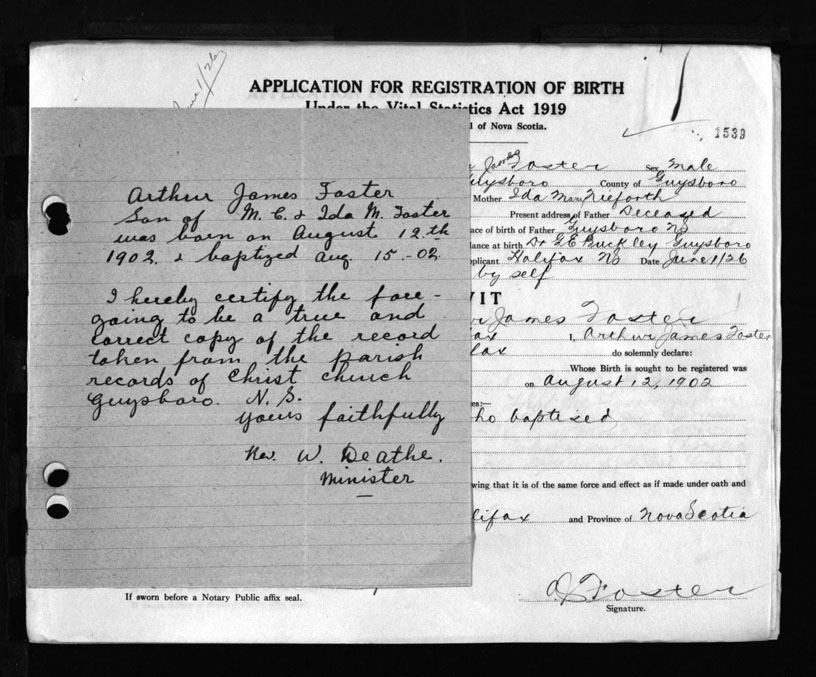 June 1/26
APPLICATION FOR REGISTRATION OF BIRTH
Under the Vital Statistics Act 1919
l of Nova Scotia.
1539
James Foster Sex Male
Guysboro County of Guysboro
Mother Ida Mary
Present address of Father Deceased
ace of birth of Father Guysboro NS
dance at birth Dr G.E. Buckley Guysboro
plicant Halifax NS Date June 1/26
by self
VIT
James Foster
fax I, Arthur James Foster
lifax do solemnly declare:
Whose Birth is sought to be registered was
on August 12, 1902
es:—
who baptised
wing that it is of the same force and effect as if made under oath and
lifax and Province of Nova Scotia
If sworn before a Notary Public affix seal.
Foster
Signature.
Arthur James Foster
Son of M. C. & Ida M. Foster
was born on August 12th
1902. & baptized Aug. 15-02
I hereby certify the fore-
going to be a true and
correct copy of the record
taken from the parish
records of Christ Church
Guysboro. N. S.
Yours faithfully
Rev. W. Deathe.
Minister